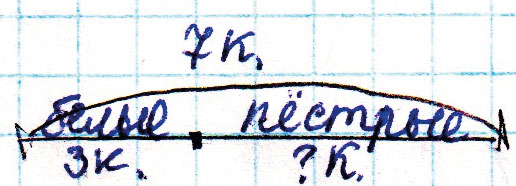 7 к.
белые пёстрые
3 к. ? К.